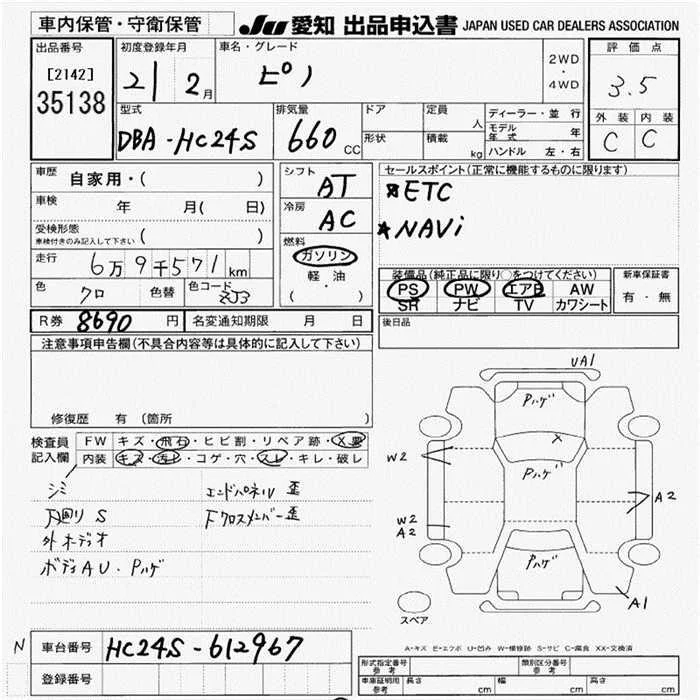 車内保管・守衛保管
JU 愛知 出品申込書 JAPAN USED CAR DEALERS ASSOCIATION
出品番号
[2142]
35138
初度登録年月
21 2月
車名・グレード
ピノ
2WD
・
4WD
評価点
3.5
外装 内装
C C
型式
DBA-HC24S
排気量
660 CC
ドア
形状
定員
人
積載
kg
ディーラー・並行
モデル年式 年
ハンドル 左・右
車歴 自家用・( )
車検 年 月( 日)
受検形態
車検付きのみ記入して下さい ( )
走行 6万9千571km
色 クロ 色替 色コード ZJ3
R券 8690 円 名変通知期限 月 日
シフト
AT
冷房
AC
燃料
ガソリン
軽・油
( )
セールスポイント(正常に機能するものに限ります)
*ETC
*NAVi
装備品(純正品に限り○をつけてください)
PS PW エアB AW
SR ナビ TV カワシート
新車保証書
有・無
後日品
注意事項申告欄(不具合内容等は具体的に記入して下さい)
修復歴 有 (箇所 )
検査員記入欄
FW キズ・飛石・ヒビ割・リペア跡・X要
内装 キズ・汚レ・コゲ・穴・スレ・キレ・破レ
シミ エンドパネル 歪
下廻り S Fクロスメンバー歪
外オーディオ
ボディAU・Pハゲ
UA1
Pハゲ
W2
Pハゲ
A2
W2
A2
Pハゲ
A1
スペア
A-キズ E-エクボ U-凹み W-補修跡 S-サビ C-腐食 XX-交換済
N 車台番号 HC24S-612967
登録番号
形式指定番号
参考
類別区分番号
参考
車庫証明用
参考
長さ cm 幅 cm 高さ cm